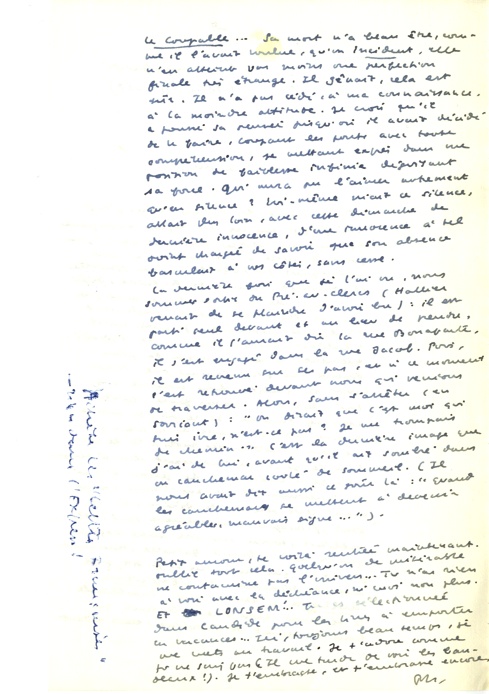 Le Coupable... Sa mort n'a beau être, com-
me il l'avait voulue, qu'un incident, elle
n'en atteint pas moins une perfection
finale très étrange. Il gênait, cela est
sûr. Il n'a pas cédé, à ma connaissance,
à la moindre attitude. Je crois qu'il
a poussé sa pensée jusqu'où il avait décidé
de le faire, coupant les ponts avec toute
compréhension, se mettant exprès dans une
position de faiblesse infinie déjouant
sa force. Qui aura pu l'aimer autrement
qu'en silence ? Lui-même niant ce silence,
allant plus loin, avec cette démarche de
dernière innocence, d'une innocence à tel
point chargée de savoir que son absence
basculait à vos côtés, sans cesse.
La dernière fois que je l'ai vu, nous
sommes sortis du Pré-au-clercs (Hallier
venait de se plaindre d'avoir bu) : il est
parti seul devant et au lieu de prendre,
comme il l'aurait dû la rue Bonaparte,
il s'est engagé dans la rue Jacob. Puis,
il est revenu sur ses pas, et à ce moment
s'est retrouvé devant nous qui venions
de traverser. Alors, sans s'arrêter (en
souriant) : "on dirait que c'est moi qui
suis ivre, n'est-ce pas ? Je me trompais
de chemin". C'est la dernière image que
j'ai de lui, avant qu'il ait sombré dans
un cauchemar coulé de sommeil. (Il
nous avait dit aussi ce soir là : "quand
les cauchemars se mettent à devenir
agréables, mauvais signe...").
Petit amour, te voilà rentrée maintenant.
oublie tout cela. quelqu'un de misérable
ne contamine pas l'univers... Tu n'as rien
à voir avec la déchéance, ni moi non plus.
Et LONSEM...
dans Candide pour les livres à emporter
en vacances... Ici, toujours beau temps, je
me mets au travail. Je t'adore comme
tu ne sais pas (Il me tarde de voir les ban-
deaux !). Je t'embrasse, et t'embrasse encore,
Ph.
dans l'Express !